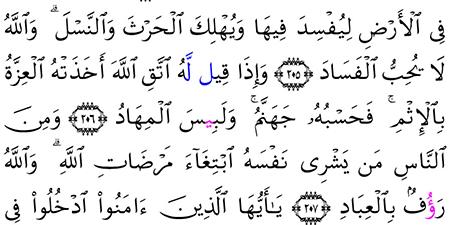 فِى ٱلْأَرْضِ لِيُفْسِدَ فِيهَا وَيُهْلِكَ ٱلْحَرْثَ وَٱلنَّسْلَ ۗ وَٱللَّهُ
لَا يُحِبُّ ٱلْفَسَادَ ٢٠٥ وَإِذَا قِيل لَّهُ ٱتَّقِ ٱللَّهَ أَخَذَتْهُ ٱلْعِزَّةُ
بِٱلْإِثْمِ ۚ فَحَسْبُهُۥ جَهَنَّمُ ۚ وَلَبِيسَ ٱلْمِهَادُ ٢٠٦ وَمِنَ
ٱلنَّاسِ مَن يَشْرِى نَفْسَهُ ٱبْتِغَآءَ مَرْضَاتِ ٱللَّهِ ۗ وَٱللَّهُ
رَؤُفٌۢ بِٱلْعِبَادِ ٢٠٧ يَـٰٓأَيُّهَا ٱلَّذِينَ ءَامَنُوا۟ ٱدْخُلُوا۟ فِى